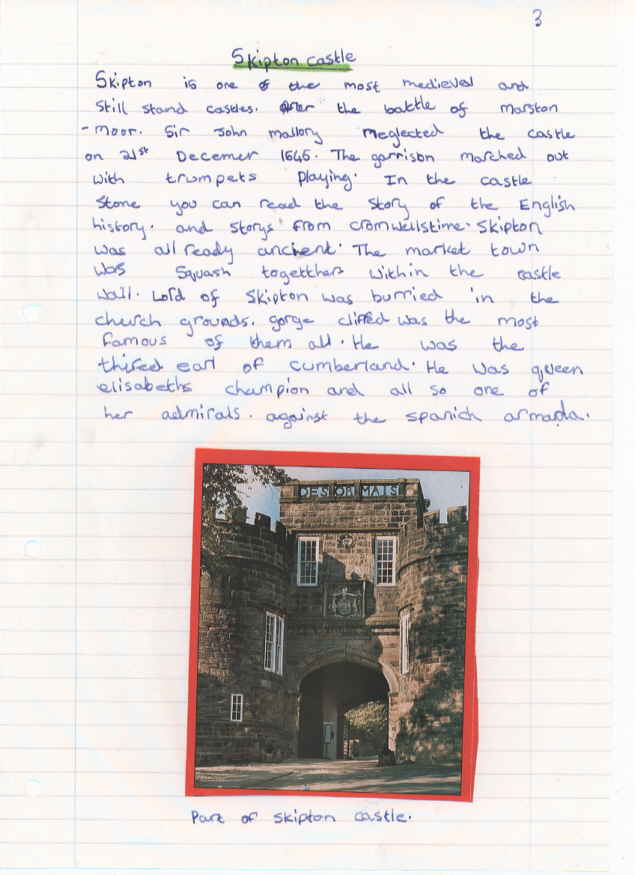 3
Skipton castle
Skipton is one of the most medieval and
still stand castles. After the battle of marston
-moor. Sir John mallory Neglected the castle
on 21st Decemer 1645. The garrison marched out
with trumpets playing. In the castle
stone you can read the story of the English
history. and storys from cromwellstime. Skipton
was all ready ancient. The market town
was squash togetthers within the castle
wall. Lord of Skipton was burried in the
church grounds. gorge cliffed was the most
famous of them all. He was the
thired earl of cumberland. He was queen
elisabeths champion and all so one of
her admirals. against the spanish armada.
DESORMAIS
Part of skipton castle.